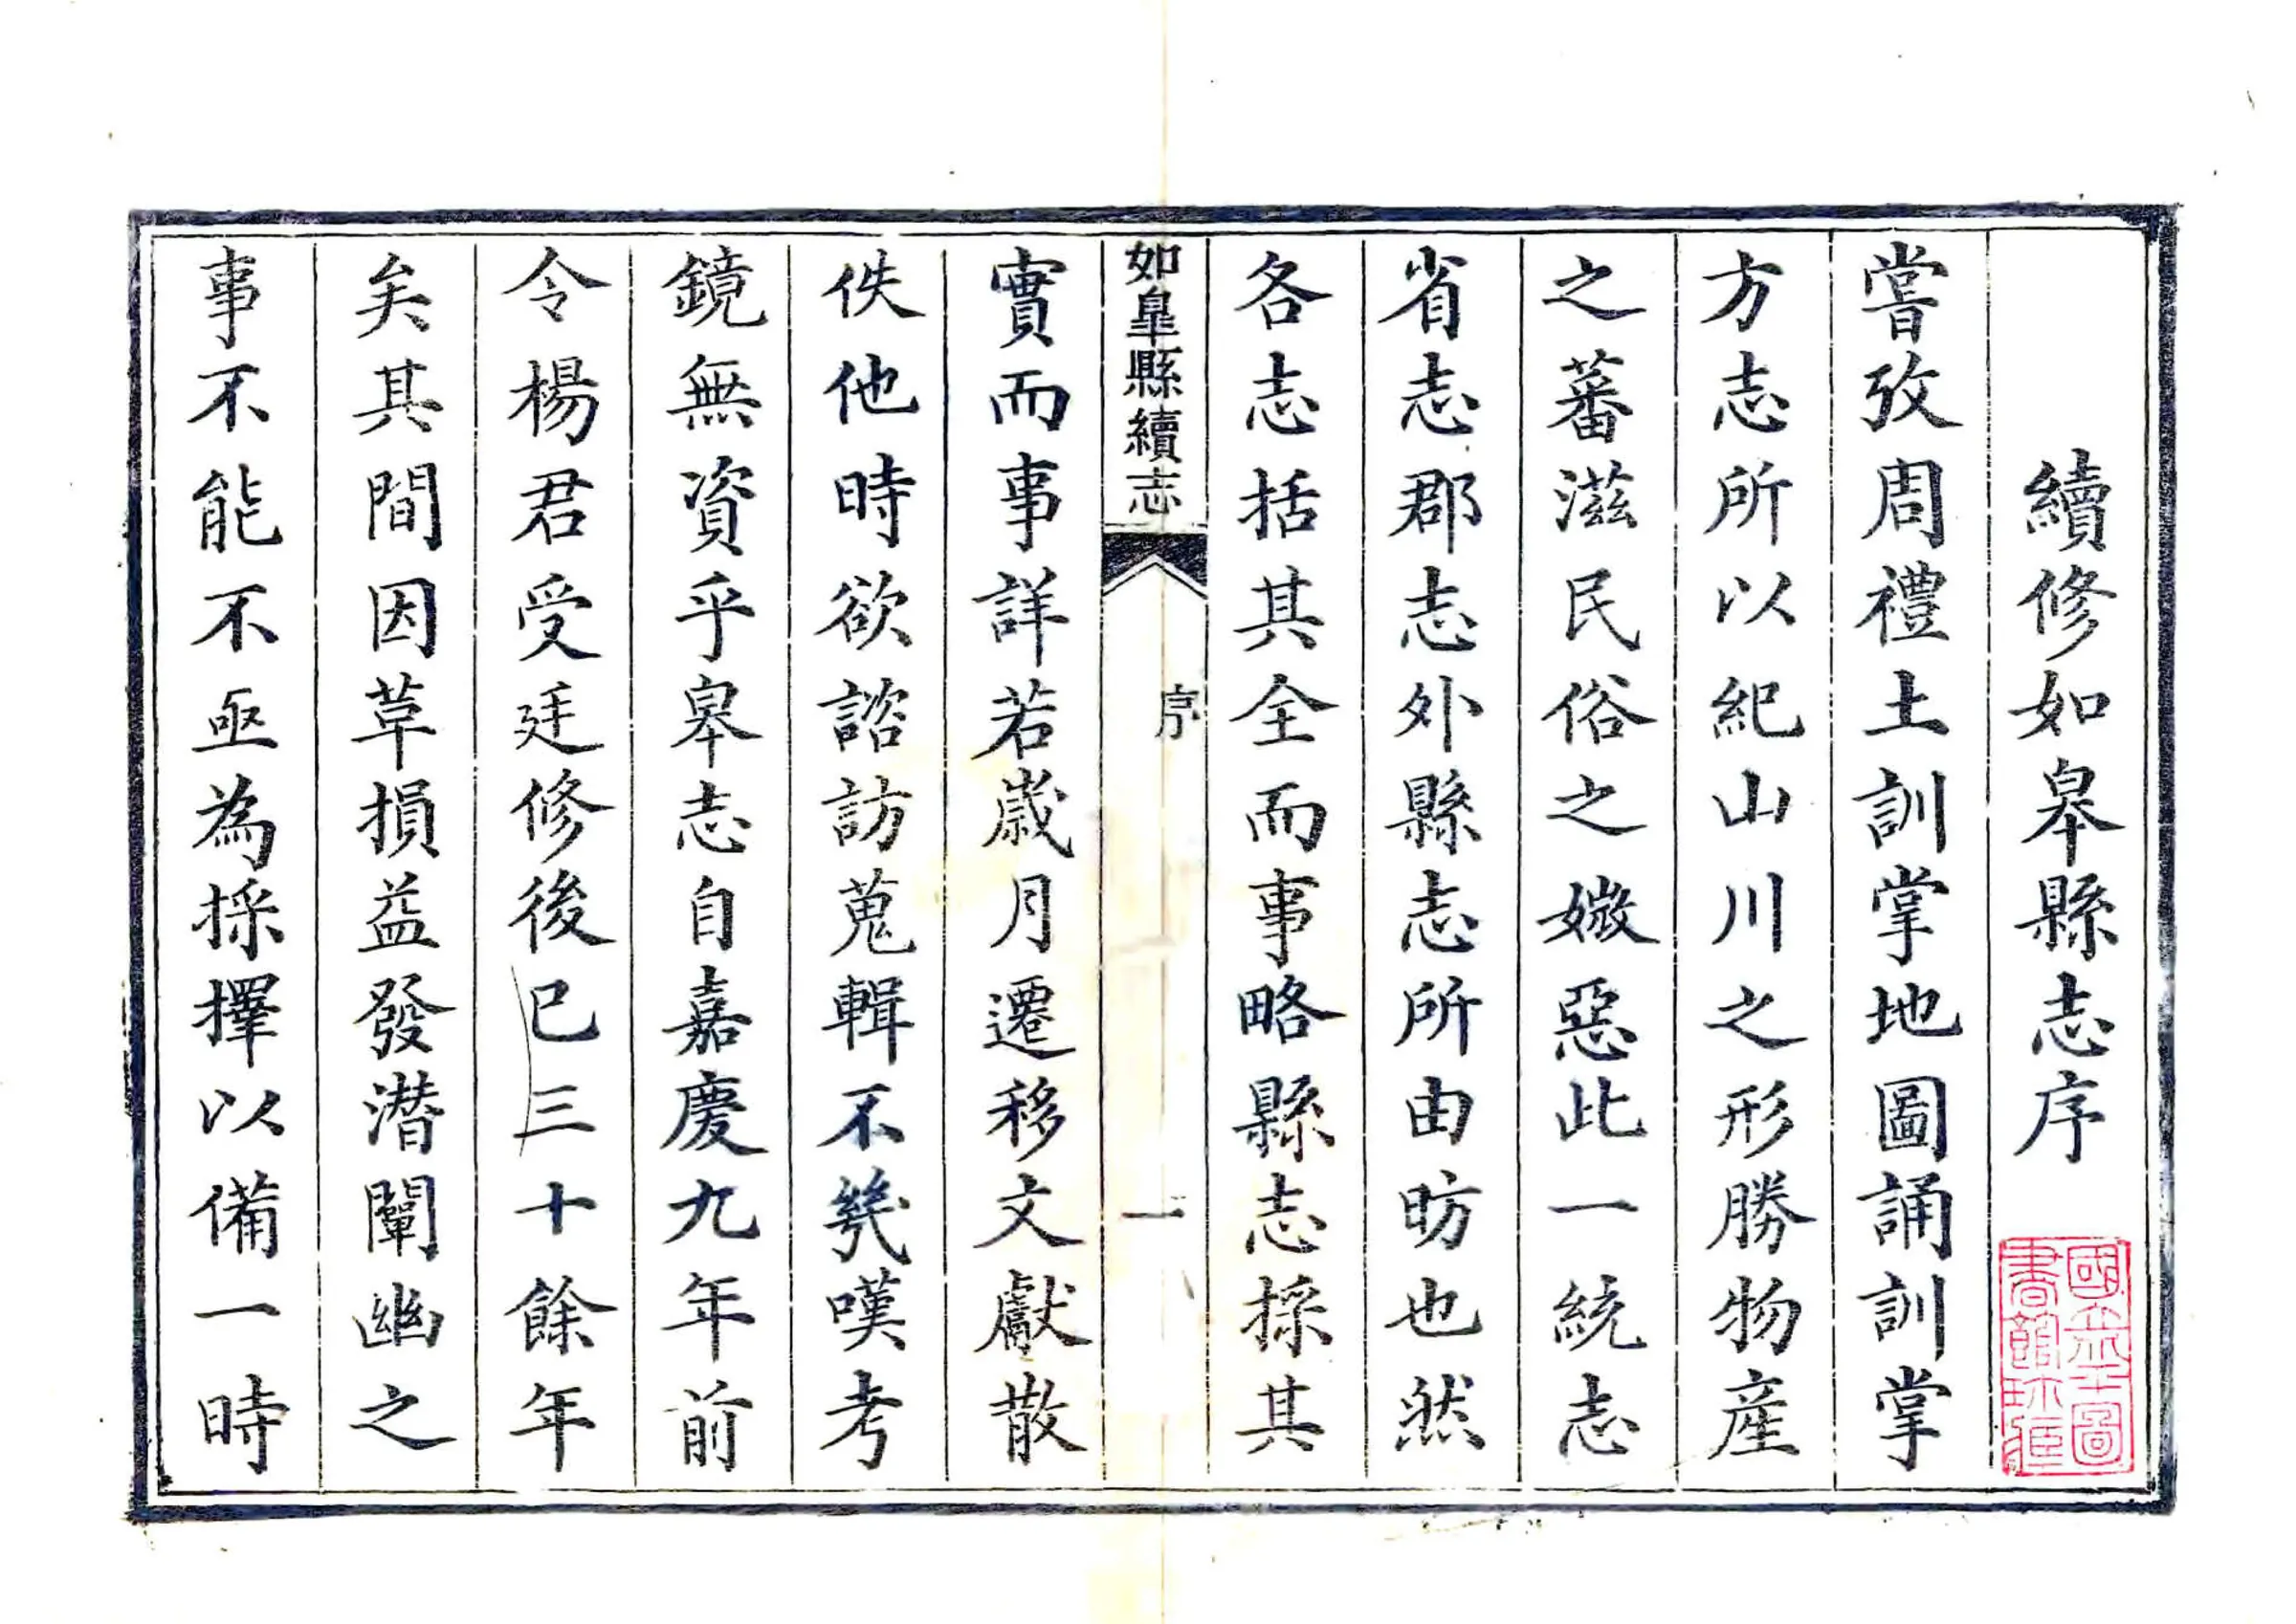 續修如皋縣志序
嘗攷周禮土訓掌地圖誦訓掌
方志所以紀山川之形勝物產
之蕃滋民俗之媺惡此一統志
省志郡志外縣志所由昉也然
各志括其全而事略縣志採其
如皐縣續志
序
一
實而事詳若歲月遷移文獻散
佚他時欲諮訪蒐輯不幾嘆考
鏡無資乎皋志自嘉慶九年前
令楊君受廷修後已三十餘年
矣其間因革損益發潛闡幽之
事不能不亟為採擇以備一時
國立北平圖
書館珍藏